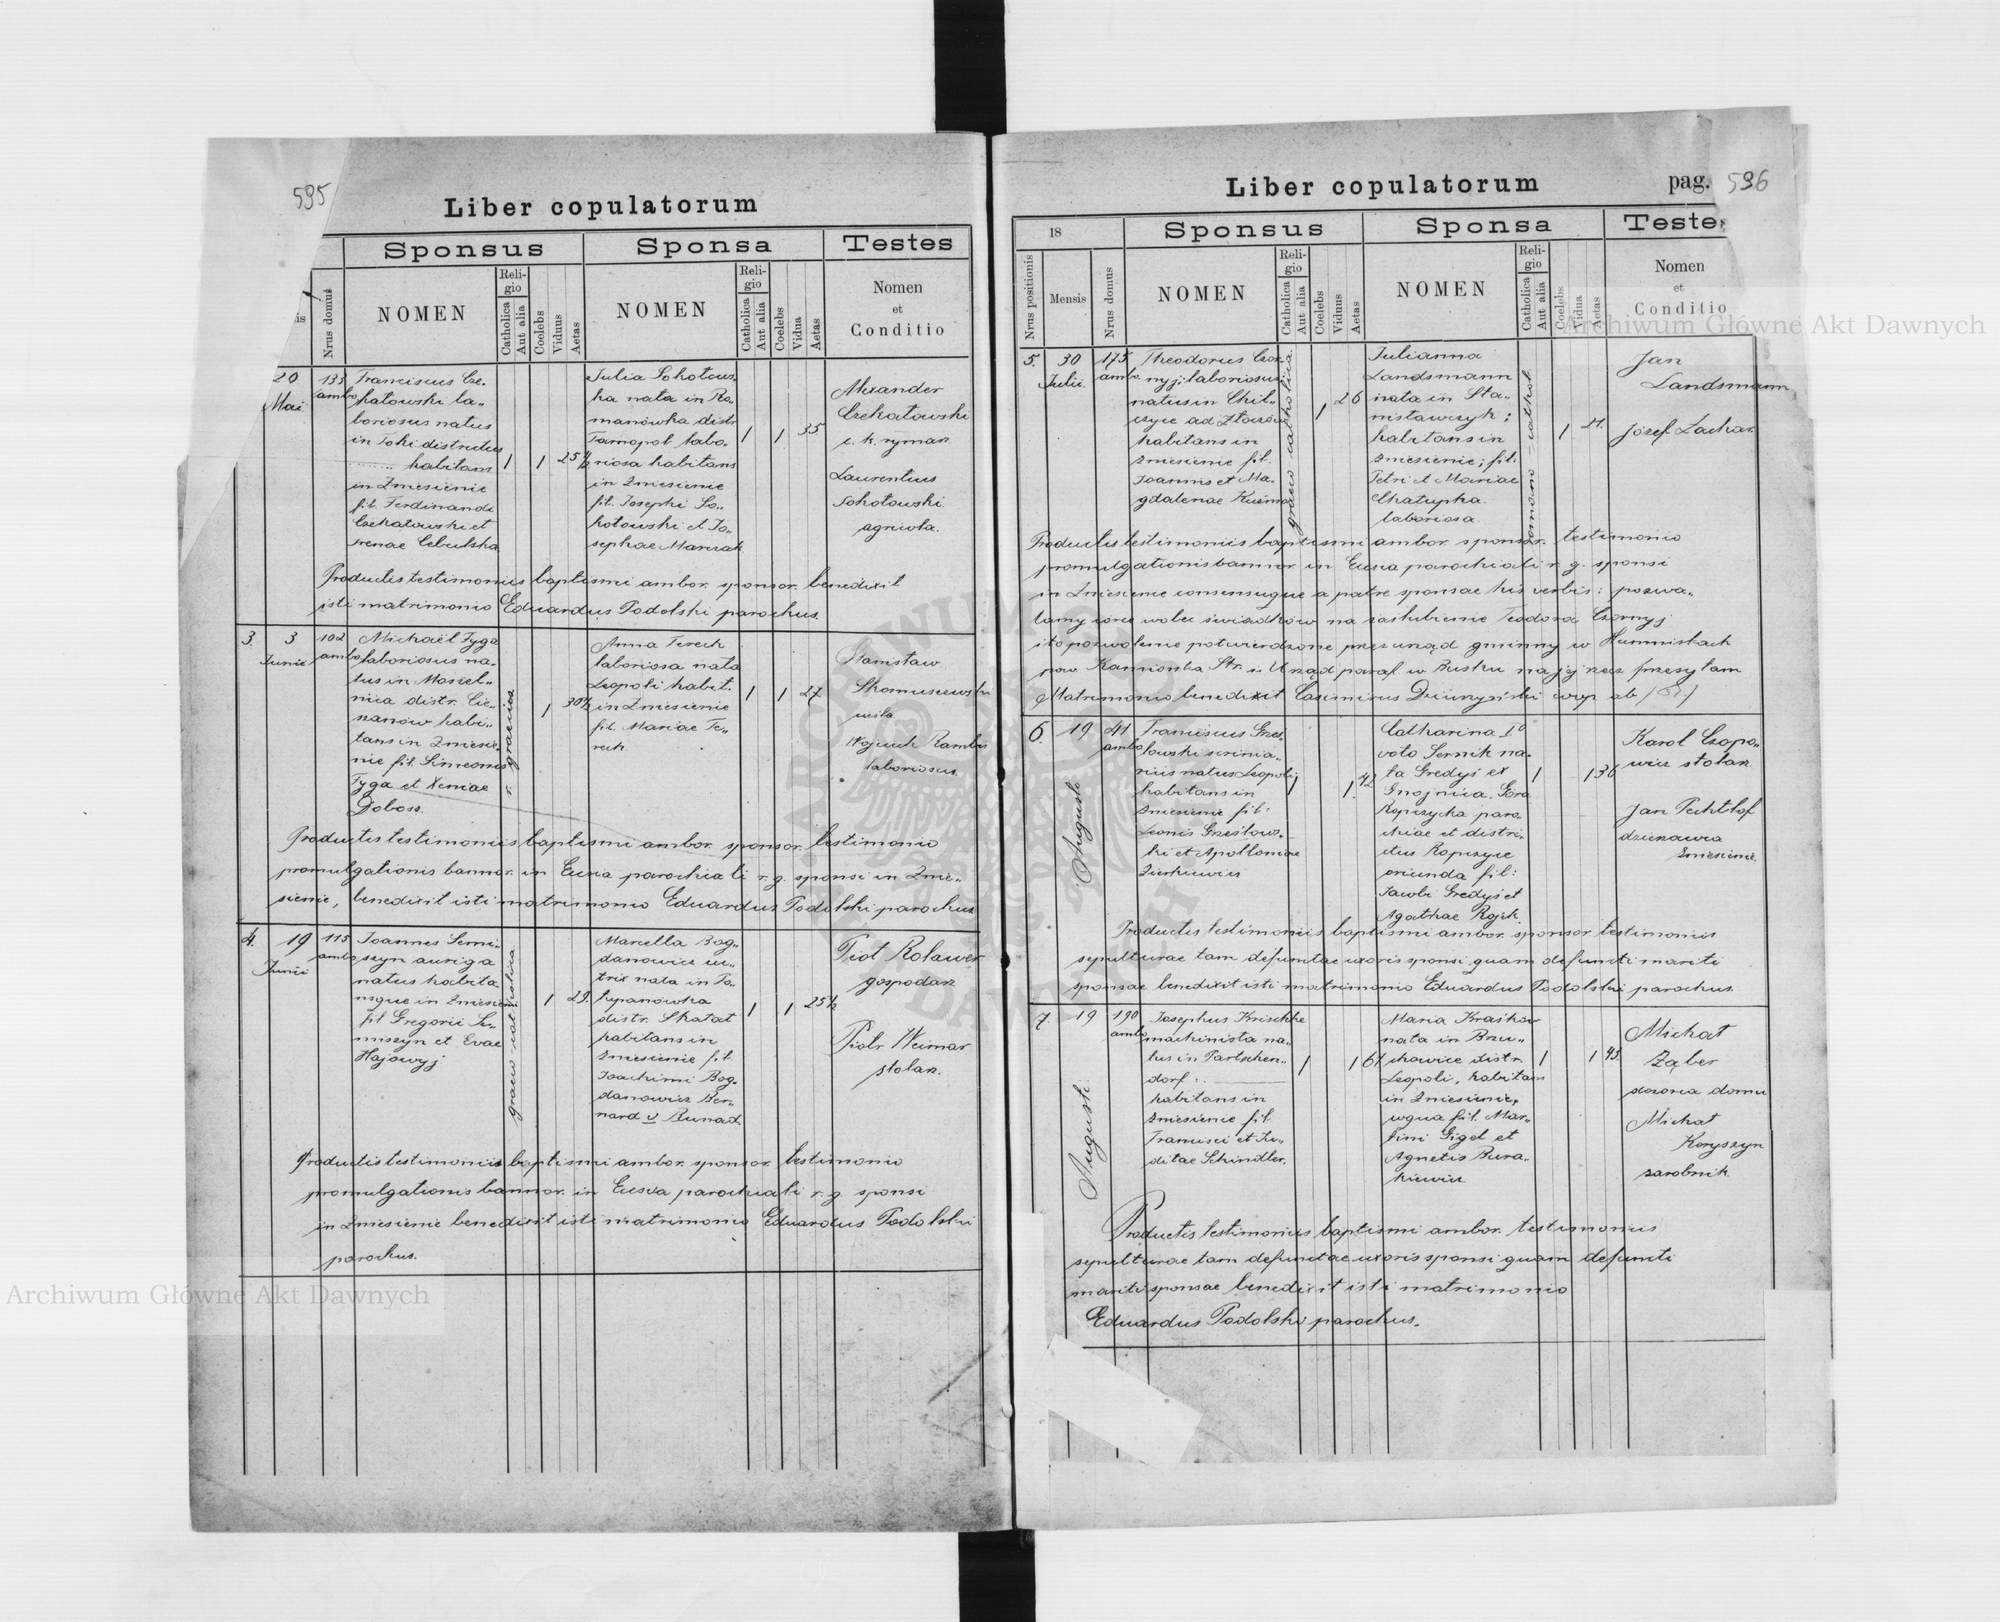 595
Liber copulatorum
Sponsus
Sponsa
Testes
Nrus domus
NOMEN
Religio
Catholica
Aut alia
Coelebs
Viduus
Aetas
NOMEN
Religio
Catholica
Aut alia
Coelebs
Vidua
Aetas
Nomen
et
Conditio
20
Mai
133
ambo
Franciscus Cze„
katowski la„
boriosus natus
in Toki districtus
habitans
in Zniesienie
fil. Ferdinandi
Czekatowski et
Irenae Cebulska
1
1
25½
Julia Sokołows„
ka nata in Ro„
manówka distr
Tarnopol labo„
riosa habitans
in Zniesienie
fil. Josephi So„
kołowski et Jo„
sephae Marczak
1
1
35
Alexander
Czekatowski
c. k. rymarz
Laurentius
Sokołowski
agricola.
Productis testimoniis baptismi ambor. sponsor. benedixit
isti matrimonio Eduardus Podolski parochus.
3.
3
Junii
102
ambo
Michaël Fyga
laboriosus na„
tus in Moszel„
nica distr. Cie„
szanów habi„
tans in Zniesie„
nie fil. Simeonis
Fyga et Xeniae
Dobosz.
r. graecus
1
30½
Anna Terech
laboriosa nata
Leopoli habit.
in Zniesienie
fil. Mariae Te„
rech
1
1
27
Stanisław
Skomuszewski
cieśla
Wojciech
laboriosus.
Productis testimoniis baptismi ambor. sponsor. testimonio
promulgationis bannor. in Ecusia parochiali r. g. sponsi in Znie„
sienie, benedixit isti matrimonio Eduardus Podolski parochus
4.
19
Junii
115
ambo
Joannes Semi„
szyn auriga
natus habita
nsque in Zniesienie
fil. Gregorii Se„
miszyn et Evae
Hajowyj
graeco-catholica
1
29.
Marcella Bog„
danowicz cu„
trix nata in To„
kipanówka
distr. Skałat
habitans in
Zniesienie fil
Joachimi Bog„
danowicz Ber„
nard v Bunad.
1
1
25½
Piot Rolawer
gospodarz
Piotr Weimar
stolarz.
Productis testimoniis baptismi ambor. sponsor. testimonio
promulgationis bannor. in Ecusia parochiali r. g. sponsi
in Zniesienie benedixit isti matrimonio Eduardus Podolski
parochus.
Liber copulatorum
pag. 596
18
Sponsus
Sponsa
Testes
Nrus positionis
Mensis
Nrus domus
NOMEN
Religio
Catholica
Aut alia
Coelebs
Viduus
Aetas
NOMEN
Religio
Catholica
Aut alia
Coelebs
Vidua
Aetas
Nomen
et
Conditio
5.
30
Julii
175
ambo
Theodorus Czor„
nyj; laboriosus
natus in Chil„
czyce ad Złoczów
habitans in
Zniesienie fil.
Joannis et Ma„
gdalenae Kuźma
graeco-catholica
1
26
Julianna
Landsmann
nata in Sta„
nisławczyk;
habitans in
Zniesienie; fil.
Petri et Mariae
Chałupka
laboriosa.
romano-cathol
1
21.
Jan
Landsmann
Józef Lachar
Productis testimoniis baptismi ambor sponsor. testimonio
promulgationis bannor. in Ecusia parochiali r. g. sponsi
in Zniesienie consensuque a patre sponsae his verbis: pozwa„
lamy córce wobec świadków na zaślubienie Teodora Czornyj
i to pozwolenie potwierdzone przez urząd gminny w Humniskach
pow Kamionka Str. i. Urząd paraf. w Busku na jej rzecz przesyłam
Matrimonio benedixit Casimirus
6.
19
Augusti
41
ambo
Franciscus Grześ„
łowski scrinia„
rius natus Leopoli
habitans in
Zniesienie fil:
Leonis Grześłow„
ki et Apolloniae
Zierkiewicz
1
1.
42
Catharina I°
voto Sernik na„
ta Gredyś ex
Gnojnica, Góra
Ropczycka paro„
chiae et distri„
ctus Ropczyce
oriunda fil:
Jacobi Gredyś et
Agathae Rojek.
1
1
36
Karol Czopo„
wicz stolarz.
Jan Pechtlof
dzierzawca
Zniesienie.
Productis testimoniis baptismi ambor. sponsor testimoniis
sepulturae tam defunctae uxoris sponsi quam defuncti mariti
sponsae benedixit isti matrimonio Eduardus Podolski parochus.
7.
19
Augusti
190
ambo
Josephus Krischke
machinista na„
tus in Partschen„
dorf
habitans in
Zniesienie fil
Francisci et Ju„
ditae Schindler.
1
1
61
Maria Kraśków
nata in Brzu„
chowice distr.
Leopoli, habitans
in Zniesienie,
fil. Mar„
tini Gigel et
Agnetis Bura„
kiewicz
1
1
45.
Michał
Ząber
dozorca domu
Michał
Koryszyn
zarobnik
Productis testimoniis baptismi ambor. testimoniis
sepulturae tam defunctae uxoris sponsi quam defuncti
mariti sponsae benedixit isti matrimonio
Eduardus Podolski parochus.
Archiwum Główne Akt Dawnych
Archiwum Główne Akt Dawnych